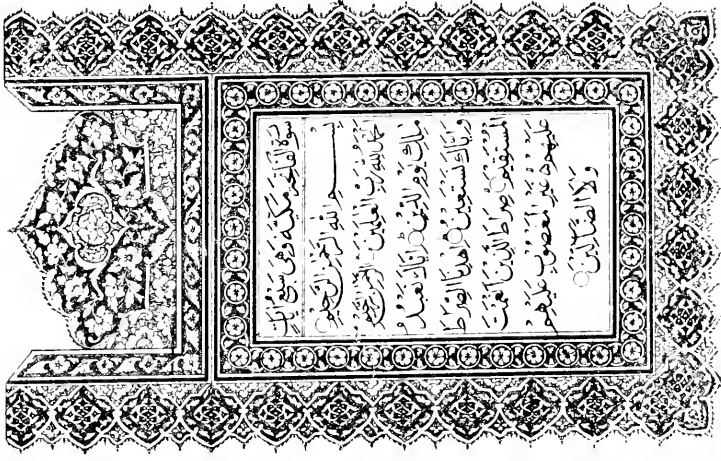 سورة الفاتحة مكية وهي سبع آيات
بسم الله الرحمن الرحيم
الحمد لله رب العلمين الرحمن الرحيم
ملك يوم الدين إياك نعبد
وإياك نستعين اهدنا الصراط
المستقيم صراط الذين أنعمت
عليهم غير المغضوب عليهم
ولا الضالين